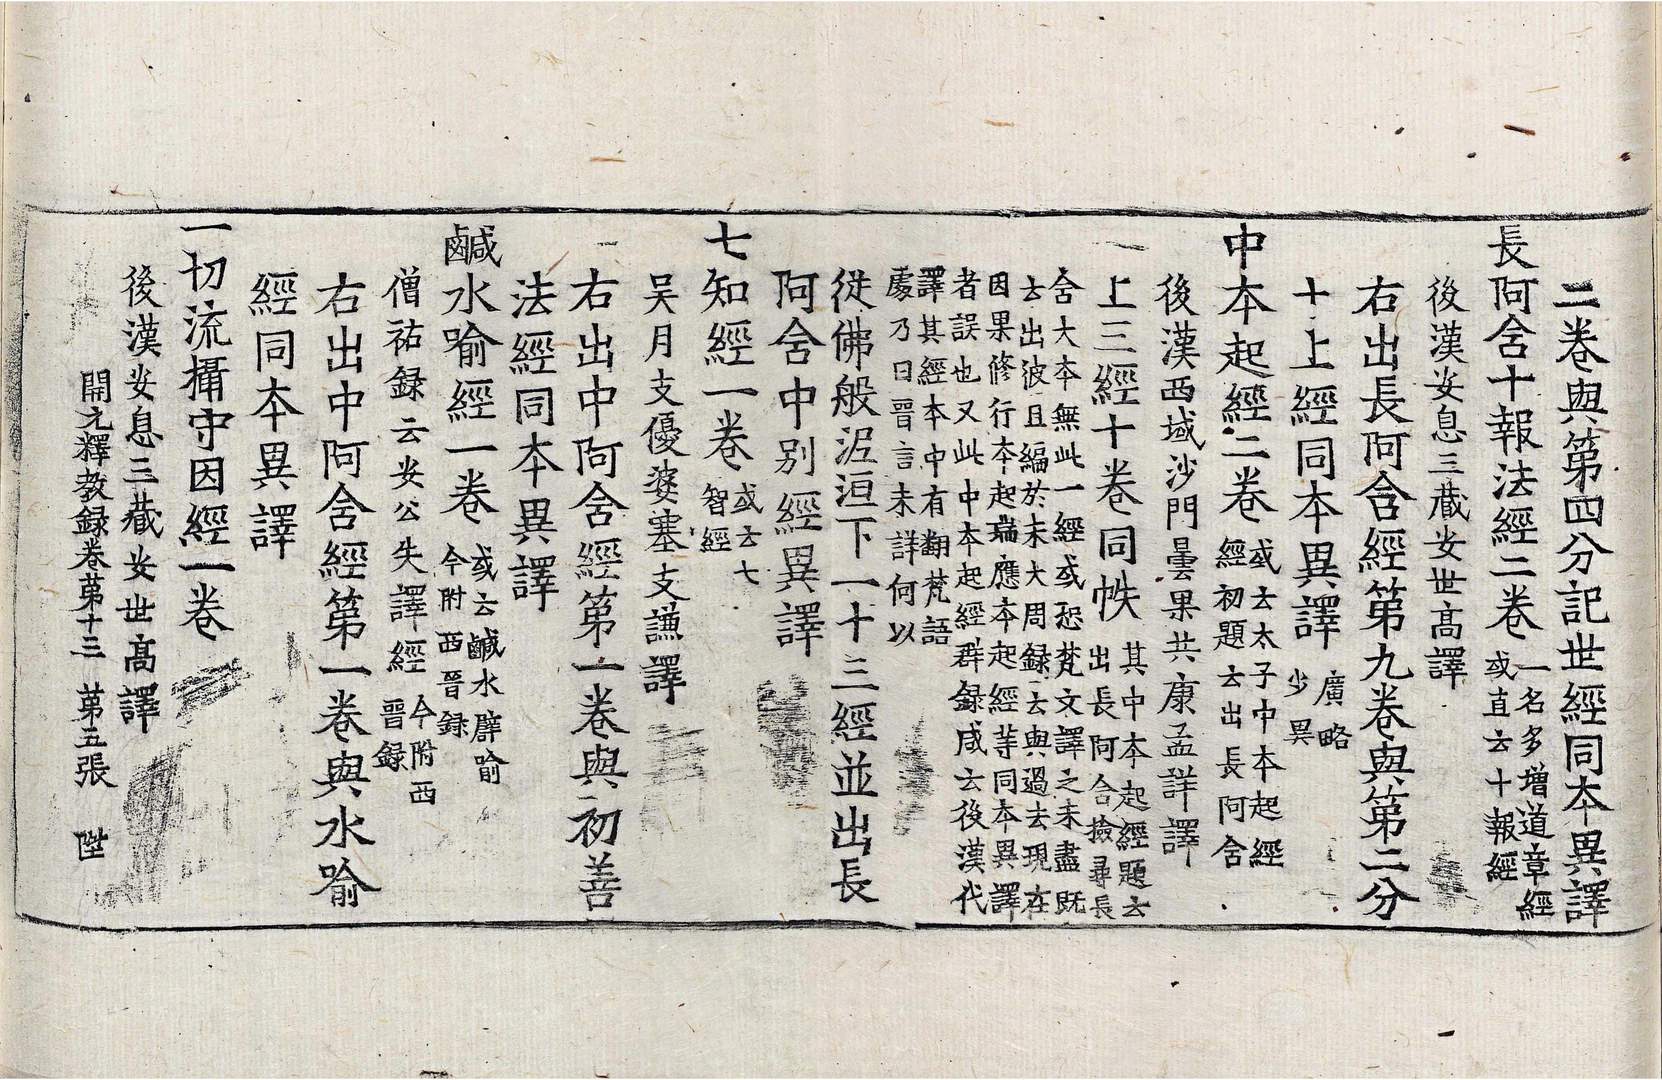 二卷與第四分記世經同本異譯
長阿含十報法經二卷 一名多增道章經
或直云十報經
後漢安息三藏安世高譯
右出長阿含經第九卷與第二分
十上經同本異譯 廣略
少異
中本起經二卷 或云太子中本起經
經初題云出長阿含
後漢西域沙門曇果共康孟詳譯
上三經十卷同帙 其中本起經題云
出長阿含撿尋長
舍大本無此一經或恐梵文譯之未盡既
云出彼且編於末大周録云與過去現在
因果修行本起瑞應本起經等同本異譯
者誤也又此中本起經群録咸云後漢代
譯其經本中有翻梵語
處乃曰晉言未詳何以
從佛般泥洹下一十三經並出長
阿含中別經異譯
七知經一卷 或云七
智經
吴月支優婆塞支謙譯
右出中阿含經第一卷與初善
法經同本異譯
鹹水喻經一卷 或云鹹水譬喻
今附西晉録
僧祐録云安公失譯經 今附西
晉録
右出中阿含經第一卷與水喻
經同本異譯
一切流攝守因經一卷
後漢安息三藏安世高譯
開元釋教録卷第十三 第五張 陛